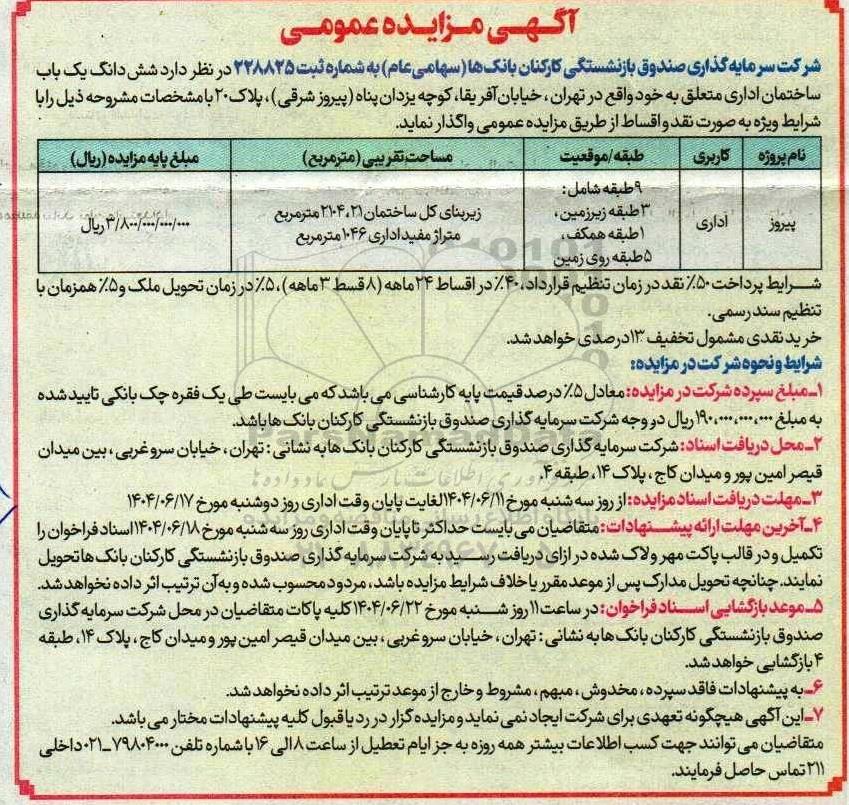 آگهی مزایده عمومی
شرکت سرمایه گذاری صندوق بازنشستگی کارکنان بانک ها (سهامی عام) به شماره ثبت ۲۲۸۸۲۵ در نظر دارد شش دانگ یک باب
ساختمان اداری متعلق به خود واقع در تهران ، خیابان آفریقا، کوچه یزدان پناه (پیروز شرقی) ، پلاک۲۰ با مشخصات مشروحه ذیل را با
شرایط ویژه به صورت نقد و اقساط از طریق مزایده عمومی واگذار نماید.
نام پروژه کاربری طبقه/موقعیت مساحت تقریبی (مترمربع) مبلغ پایه مزایده (ریال)
پیروز اداری ۹طبقه شامل:
۳طبقه زیرزمین ،
۱طبقه همکف ،
۵طبقه روی زمین
زیربنای کل ساختمان ۲۱۰۴،۲۱ مترمربع
متراژ مفید اداری ۱۰۴۶ مترمربع
۳/۸۰۰/۰۰۰/۰۰۰/۰۰۰ ریال
شرایط پرداخت ۵۰٪ نقد در زمان تنظیم قرارداد، ۴۰٪ در اقساط ۲۴ ماهه (۸ قسط ۳ ماهه) ، ۵٪ در زمان تحویل ملک و ۵٪ همزمان با
تنظیم سند رسمی.
خرید نقدی مشمول تخفیف ۱۳درصدی خواهد شد.
شرایط و نحوه شرکت در مزایده:
۱ـ مبلغ سپرده شرکت در مزایده: معادل ۵٪ درصد قیمت پایه کارشناسی می باشد که می بایست طی یک فقره چک بانکی تایید شده
به مبلغ ۱۹۰،۰۰۰،۰۰۰،۰۰۰ ریال در وجه شرکت سرمایه گذاری صندوق بازنشستگی کارکنان بانک ها باشد.
۲ـ محل دریافت اسناد: شرکت سرمایه گذاری صندوق بازنشستگی کارکنان بانک ها به نشانی : تهران ، خیابان سرو غربی ، بین میدان
قیصر امین پور و میدان کاج ، پلاک ۱۴، طبقه ۴.
۳ـ مهلت دریافت اسناد مزایده: از روز سه شنبه مورخ ۱۴۰۴/۰۶/۱۱ لغایت پایان وقت اداری روز دوشنبه مورخ ۱۴۰۴/۰۶/۱۷
۴ـ آخرین مهلت ارائه پیشنهادات: متقاضیان می بایست حداکثر تا پایان وقت اداری روز سه شنبه مورخ ۱۴۰۴/۰۶/۱۸ اسناد فراخوان را
تکمیل و در قالب پاکت مهر و لاک شده در ازای دریافت رسید به شرکت سرمایه گذاری صندوق بازنشستگی کارکنان بانک ها تحویل
نمایند. چنانچه تحویل مدارک پس از موعد مقرر یا خلاف شرایط مزایده باشد، مردود محسوب شده و به آن ترتیب اثر داده نخواهد شد.
۵ـ موعد بازگشایی اسناد فراخوان: در ساعت ۱۱ روز شنبه مورخ ۱۴۰۴/۰۶/۲۲ کلیه پاکات متقاضیان در محل شرکت سرمایه گذاری
صندوق بازنشستگی کارکنان بانک ها به نشانی : تهران ، خیابان سرو غربی ، بین میدان قیصر امین پور و میدان کاج ، پلاک ۱۴، طبقه
۴ بازگشایی خواهد شد.
۶ـ به پیشنهادات فاقد سپرده ، مخدوش ، مبهم ، مشروط و خارج از موعد ترتیب اثر داده نخواهد شد.
۷ـ این آگهی هیچگونه تعهدی برای شرکت ایجاد نمی نماید و مزایده گزار در رد یا قبول کلیه پیشنهادات مختار می باشد.
متقاضیان می توانند جهت کسب اطلاعات بیشتر همه روزه به جز ایام تعطیل از ساعت ۸ الی ۱۶ با شماره تلفن ۷۹۸۰۴۰۰۰ـ۰۲۱ داخلی
۲۱۱ تماس حاصل فرمایند.